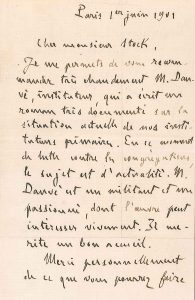 Paris 1er juin 1901
Cher monsieur Stock,
Je me permets de vous recom-
mander très chaudement M.
Danvé, instituteur, qui a écrit un
roman très documenté sur la
situation actuelle de nos insti-
tuteurs primaires. En ce moment
de lutte contre les congrégations,
le sujet est d'actualité. M.
Danvé est un militant et un
passionné, dont l'œuvre peut
intéresser vivement. Il mé-
rite un bon accueil.
Merci personnellement
de ce que vous pourrez faire